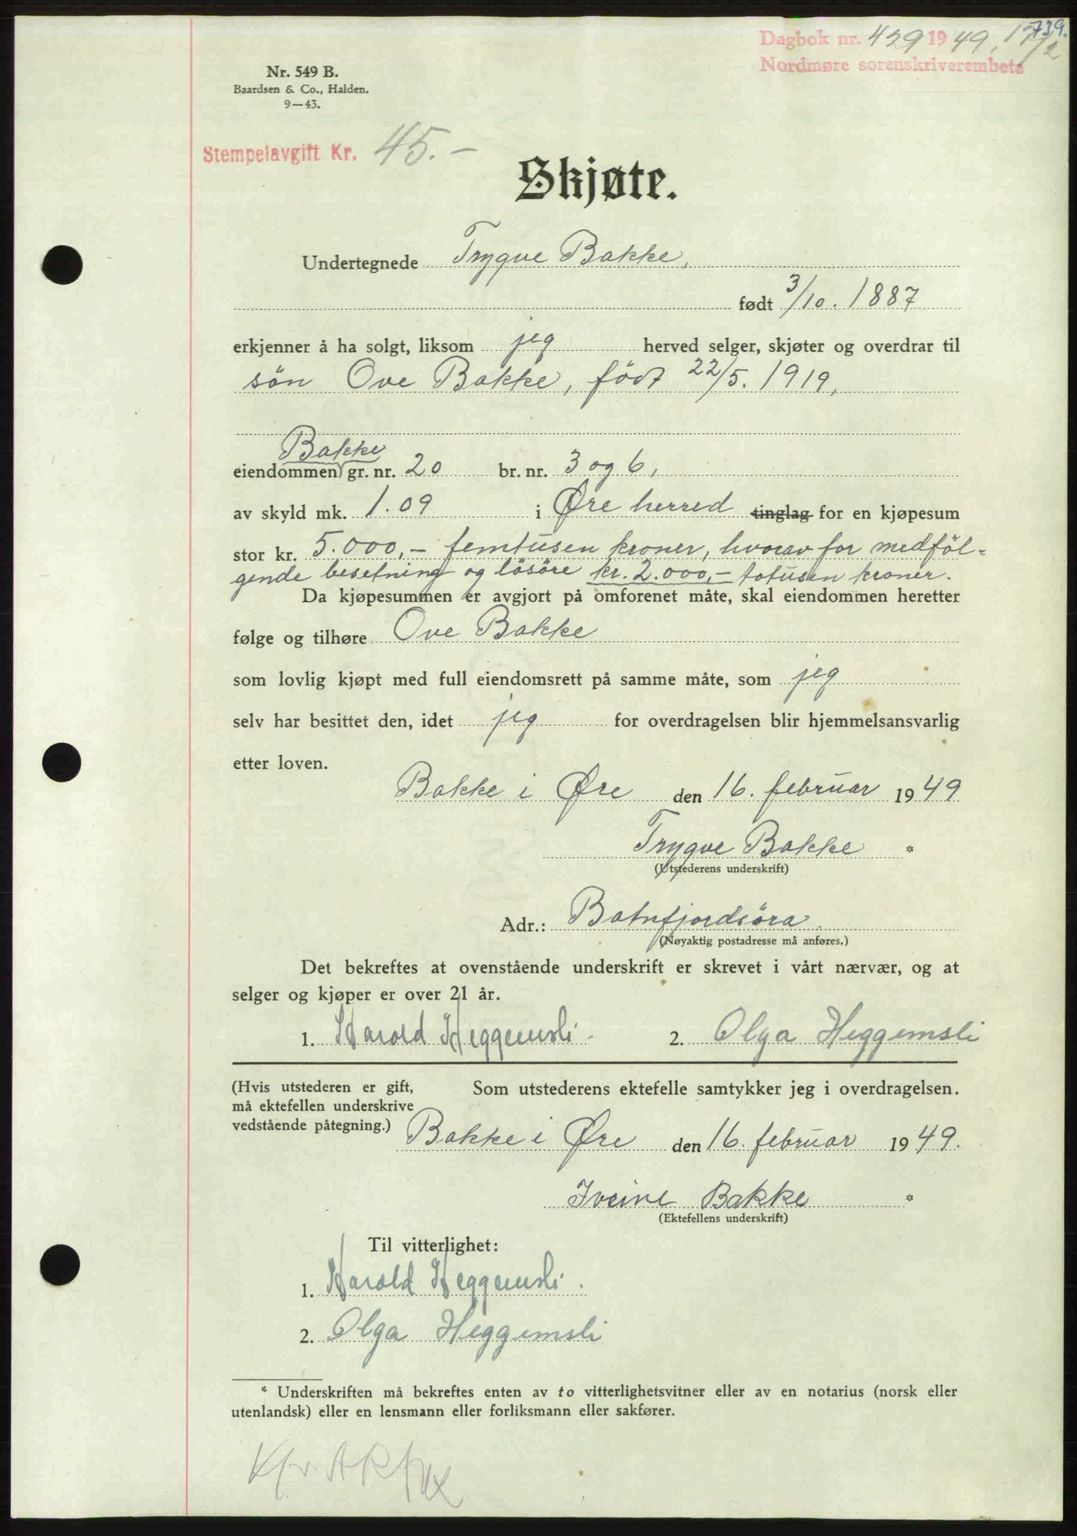 739.
Dagbok nr. 439 1949. 17/2
Nordmøre sorenskriverembete
Nr. 549 B.
Baardsen & Co., Halden.
9—43.
Stempelavgift Kr. 45.–
Skjøte.
Undertegnede Trygve Bakke,
født 3/10. 1887
erkjenner å ha solgt, liksom jeg herved selger, skjøter og overdrar til
sön Ove Bakke, född 22/5. 1919,
Bakke
eiendommen gr. nr. 20 br. nr. 3 og 6,
av skyld mk. 1.09 i Øre herred tinglag for en kjøpesum
stor kr. 5.000,- femtusen kroner, hvorav for medföl-
gende besetning og lösöre kr. 2.000,- totusen kroner.
Da kjøpesummen er avgjort på omforenet måte, skal eiendommen heretter
følge og tilhøre Ove Bakke
som lovlig kjøpt med full eiendomsrett på samme måte, som jeg
selv har besittet den, idet jeg for overdragelsen blir hjemmelsansvarlig
etter loven.
Bakke i Øre den 16. februar 1949
Trygve Bakke *
(Utstederens underskrift)
Adr.: Batnfjordsöra.
(Nøyaktig postadresse må anføres.)
Det bekreftes at ovenstående underskrift er skrevet i vårt nærvær, og at
selger og kjøper er over 21 år.
1. Harald Heggemsli. 2. Olga Heggemsli
(Hvis utstederen er gift, Som utstederens ektefelle samtykker jeg i overdragelsen.
må ektefellen underskrive
vedstående påtegning.)
Bakke i Øre den 16. februar 1949.
Iveine Bakke *
(Ektefellens underskrift)
Til vitterlighet:
1. Harald Heggemsli.
2. Olga Heggemsli
* Underskriften må bekreftes enten av to vitterlighetsvitner eller av en notarius (norsk eller
utenlandsk) eller en lensmann eller forliksmann eller sakfører.